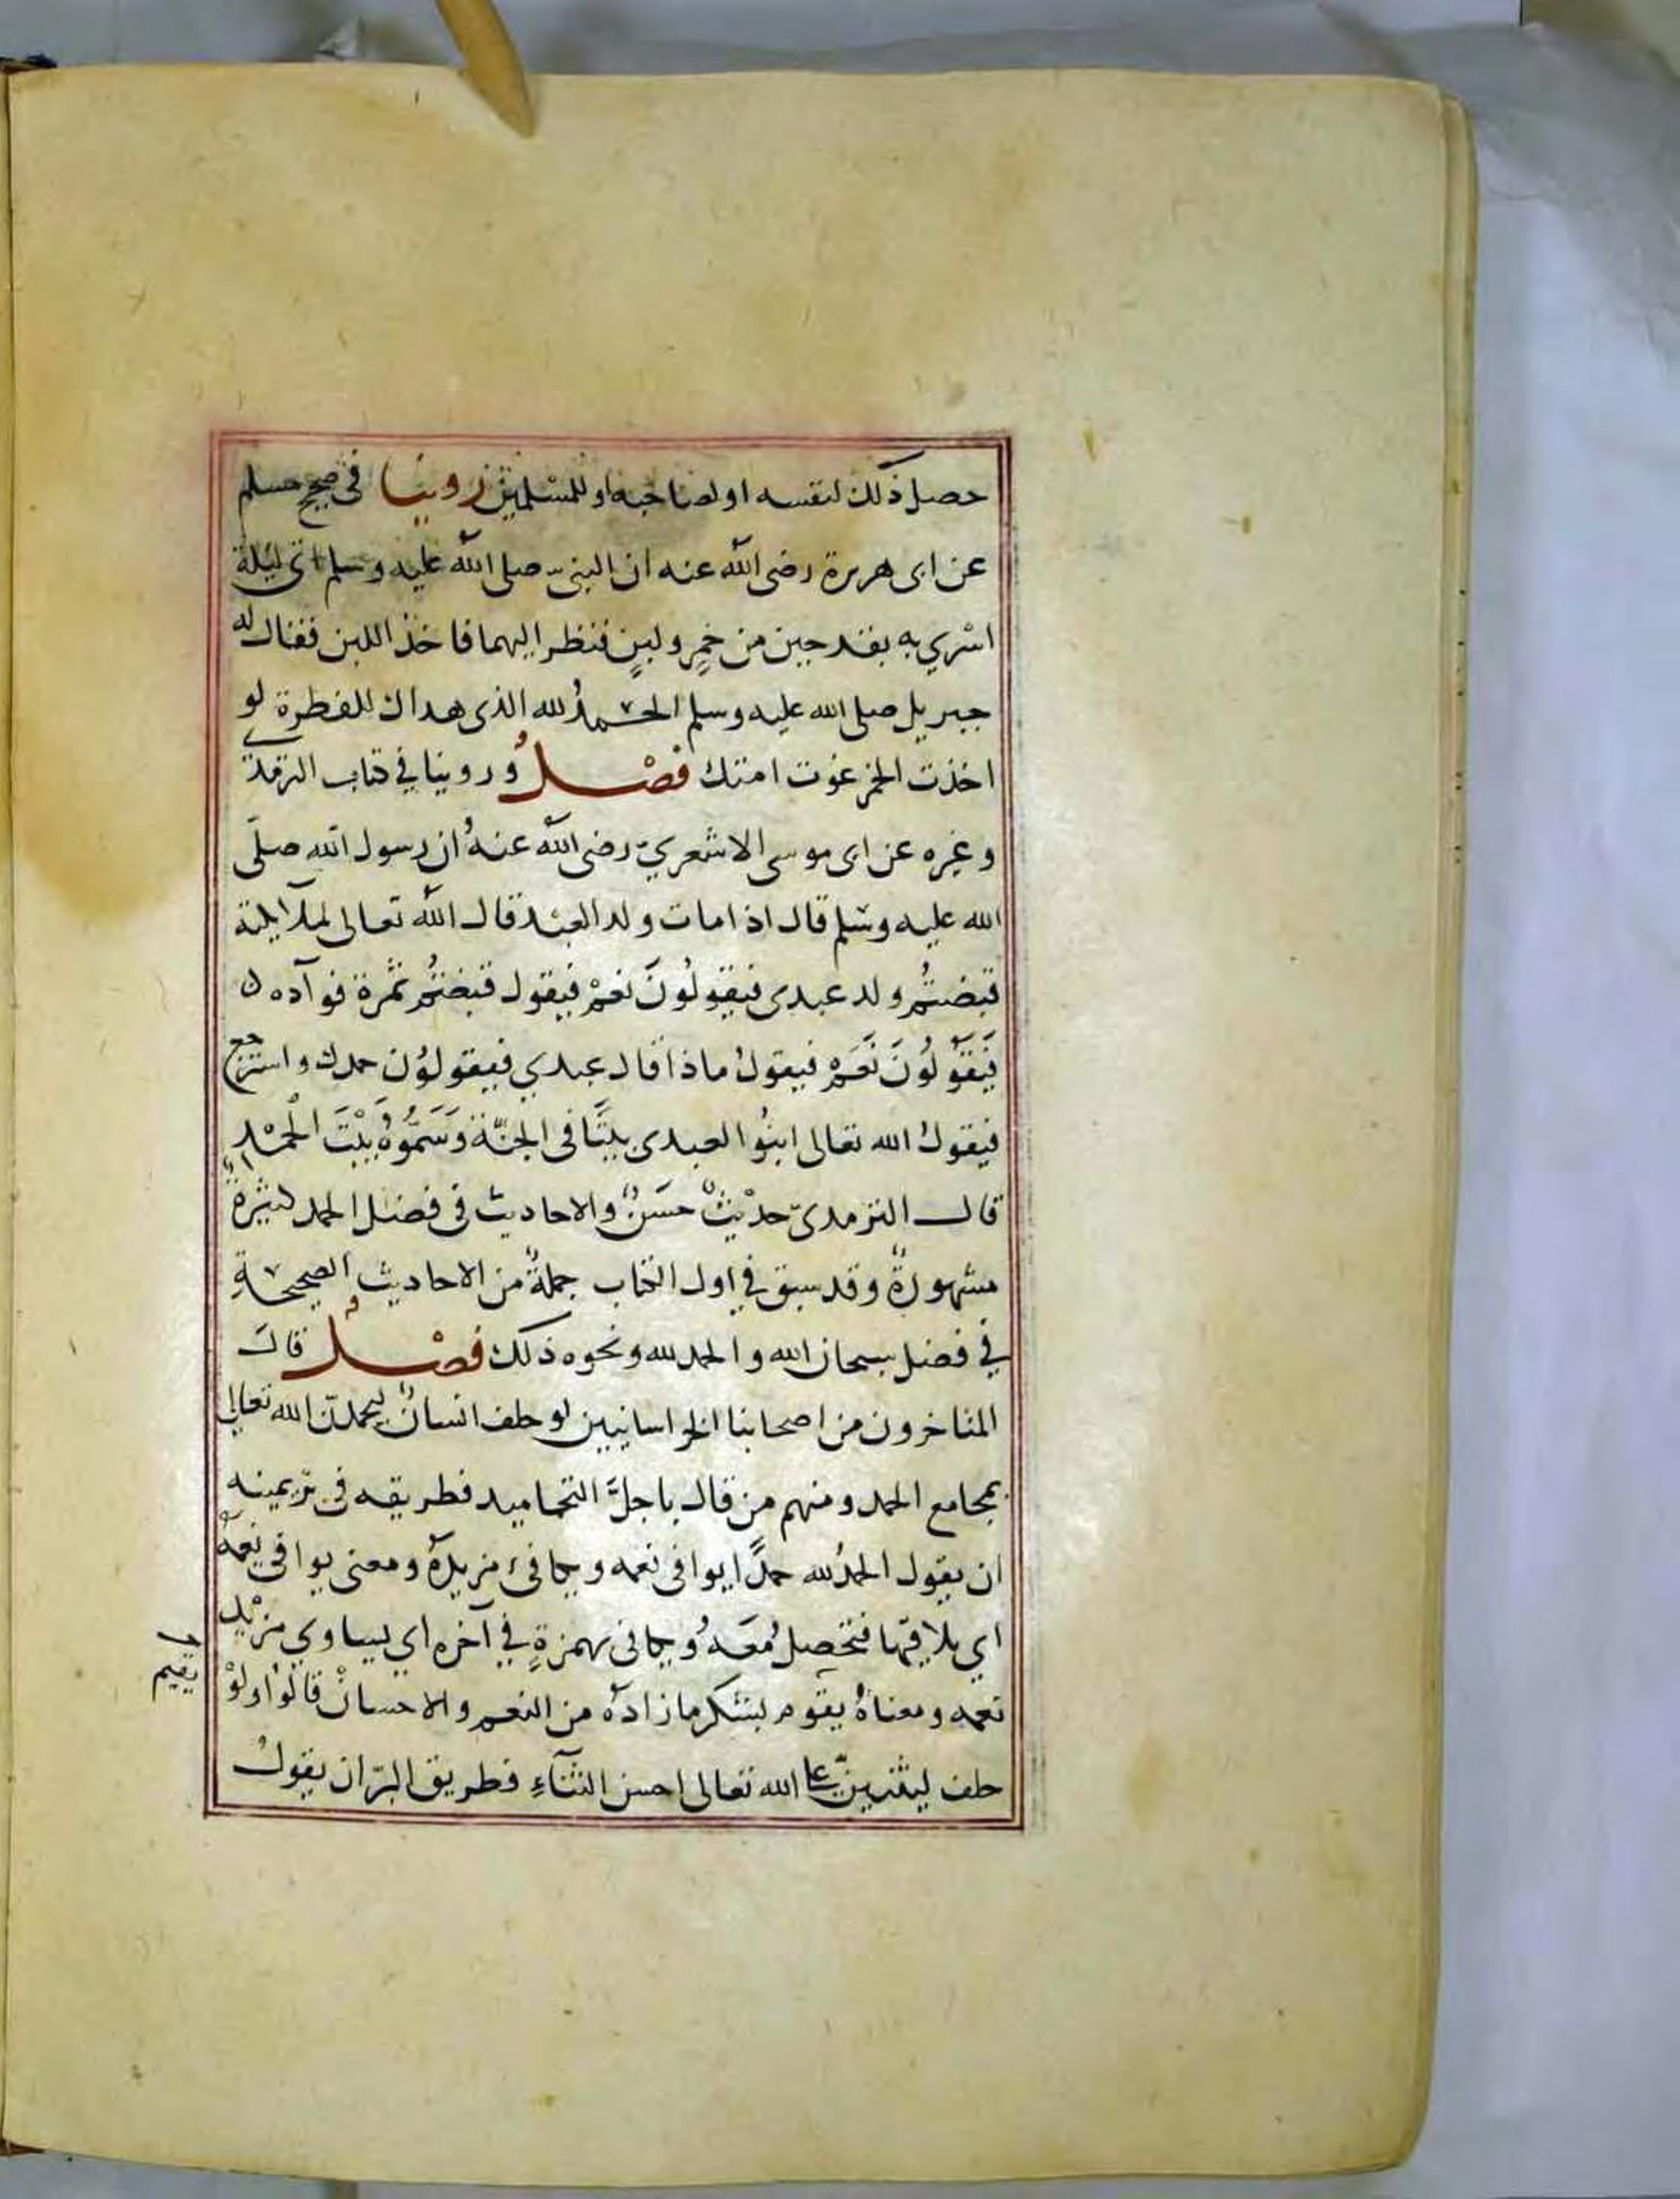 حصل ذلك لنفسه او لصاحبه او للمسلمين روينا فى صحيح مسلم
عن ابى هريرة رضى الله عنه ان النبى صلى الله عليه وسلم اتى ليلة
اسْري به بقدحين من خمرٍ ولبنٍ فنظر اليهما فاخذ اللبن فقال له
جبريل صلى الله عليه وسلم الحمدُ لله الذى هداك للفطرة لو
اخذت الخمر غوت امتك فصْلُ وروينا في كتاب الترمذي
وغيره عن ابى موسى الاشعريّ رضى الله عنهُ ان رسول الله صلّى
الله عليه وسلم قال اذا مات ولد العبْد قال الله تعالى لملآئكته
قبضتُم ولد عبدى فيقولُونَ نعمْ فيقول قبضتُم ثمرة فوآده
فَيَقُولُونَ نَعَمْ فيقولُ ماذا قال عبدي فيقولوُن حمدك واسترجع
فيقولُ الله تعالى ابنُوا لعبدى بيتًا فى الجنّة وَسَمُّوهُ بَيْتَ الْحَمْد
قال الترمذىّ حديْثٌ حسَنٌ والاحاديث فى فضل الحمد كثيرةٌ
مشهورةٌ وقد سبق في اول الكتاب جملةٌ من الاحاديث الصحيحةِ
في فضل سبحان الله والحمد لله ونحوه ذلك فصْلُ قالَ
المتاخرون من اصحابنا الخراسانيين لو حلف انسانٌ ليحمدنّ الله تعالى
بمجامع الحمد ومنهم من قال باجلَّ التحاميد فطريقه فى برّ يمينه
ان يقول الحمدُ لله حمدًا يوافى نعمه ويكافئ مزيدهُ ومعنى يوافى نعمهُ
اي يلاقيها فتحصلُ معَهُ ويكافى بهمزةٍ في آخره اي يساوي مزيْد
نعمه ومعناهُ يقوم بشكر ما زادهُ من النعم والاحسانْ قالوُا ولوْ
يقيم
حلف ليثنينّ على الله تعالى احسن الثنآءِ فطريق البرّ ان يقولُ